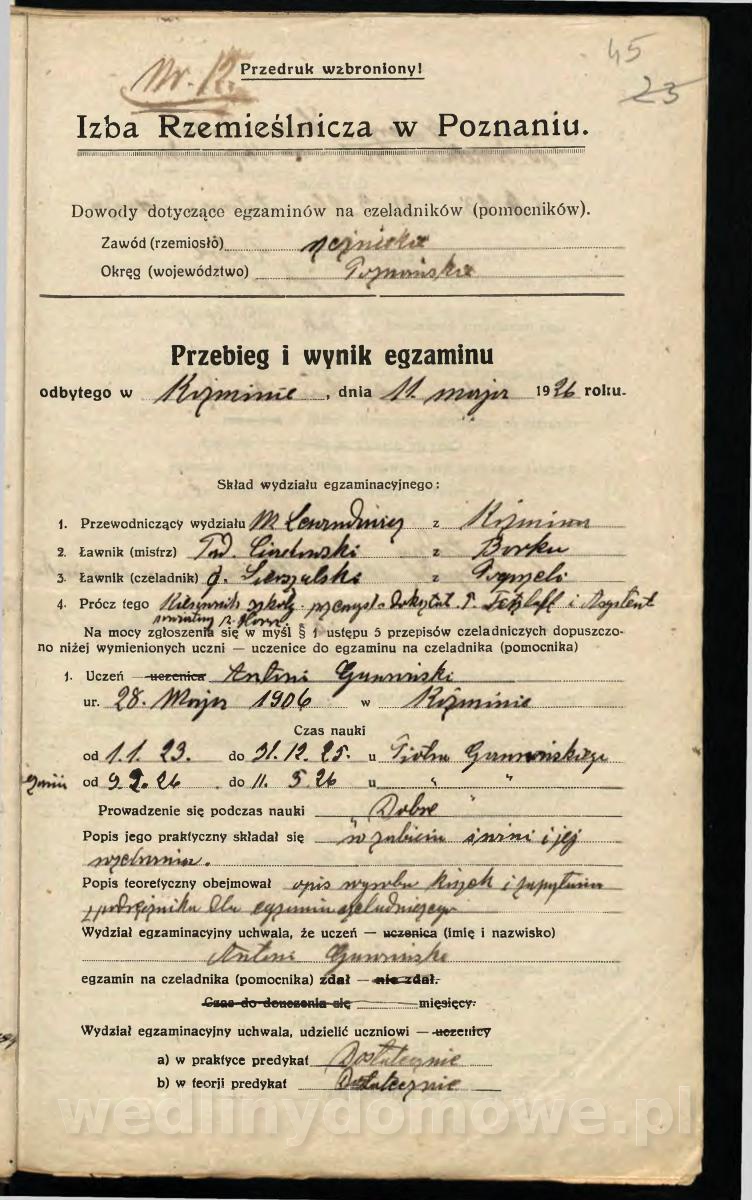 45
Nr. 12.
Przedruk wzbroniony!
23
Izba Rzemieślnicza w Poznaniu.
Dowody dotyczące egzaminów na czeladników (pomocników).
Zawód (rzemiosło) rzeźnickie
Okręg (województwo) Poznańskie
Przebieg i wynik egzaminu
odbytego w Koźminie, dnia 11. maja 1926 roku.
Skład wydziału egzaminacyjnego:
1. Przewodniczący wydziału z Koźmina
2. Ławnik (mistrz) z Borku
3. Ławnik (czeladnik) z
4. Prócz tego i Asystent
Na mocy zgłoszenia się w myśl § 1 ustępu 5 przepisów czeladniczych dopuszczo-
no niżej wymienionych uczni — uczenice do egzaminu na czeladnika (pomocnika)
1. Uczeń — uczenica Antoni
ur. 28. Maja 1906 w Koźminie
Czas nauki
od 1.1. 23. do 31.12. 25. u Piotra
od 9 2. 26 do 11. 5 26 u " "
Prowadzenie się podczas nauki „Dobre"
Popis jego praktyczny składał się w zabiciu świni i jej
Popis teoretyczny obejmował opis wyrobu kiszek i zapytania
z podręcznika dla egzaminu czeladniczego
Wydział egzaminacyjny uchwala, że uczeń — uczenica (imię i nazwisko)
Antoni
egzamin na czeladnika (pomocnika) zdał — nie zdał.
Czas do douczenia się miesięcy.
Wydział egzaminacyjny uchwala, udzielić uczniowi — uczenicy
a) w praktyce predykat Dostatecznie
b) w teorji predykat Dostatecznie
wedlinydomowe.pl